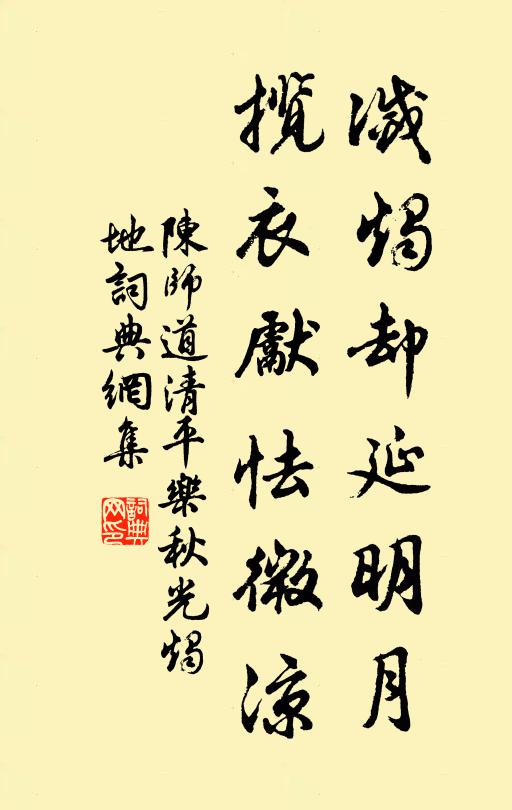 滅燭却延明月
攬衣獻怯微涼
陳師道清平樂秋光燭
地詞典網集
詞典
网印